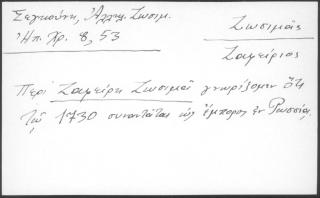 Σεγκούνη, Ἀλληλ. Ζωσιμ.
Ἠπ. Χρ. 8, 53
Ζωσιμᾶς
Ζαφείριος
Περὶ Ζαφείρη Ζωσιμᾶ γνωρίζομεν ὅτι
τῷ 1730 συναντᾶται ὡς ἔμπορος ἐν Ρωσσίᾳ.